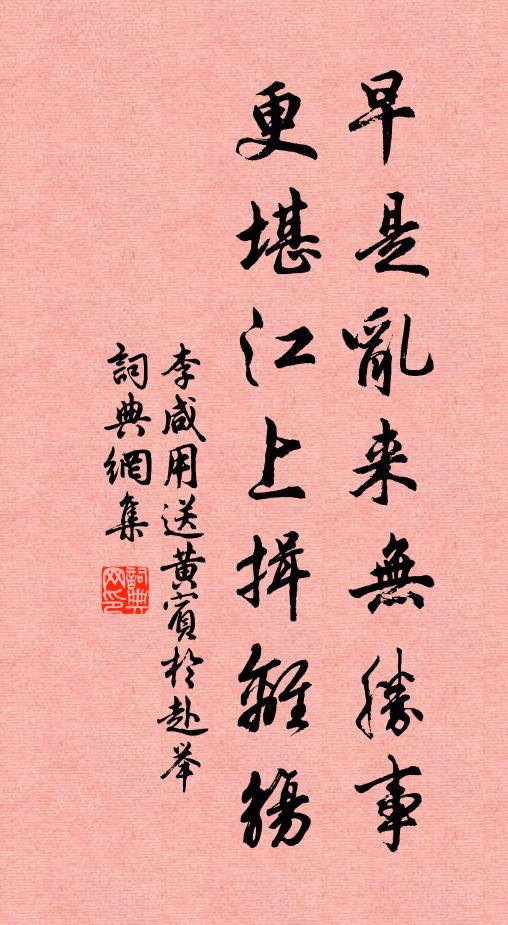 早是亂来無勝事
更堪江上揖離觴
李咸用送黃賓於赴举
詞典網集
詞典网印